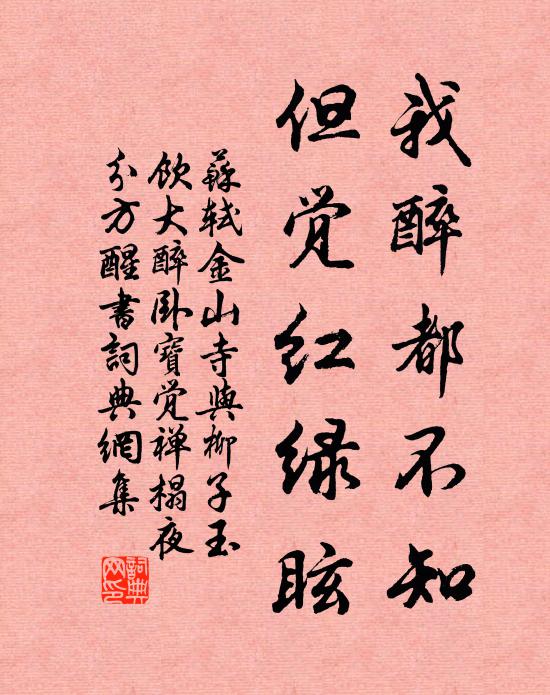 我醉都不知
但觉红绿眩
蘇轼金山寺與柳子玉
飲大醉卧寶觉禅榻夜
分方醒書詞典網集
詞典
网印